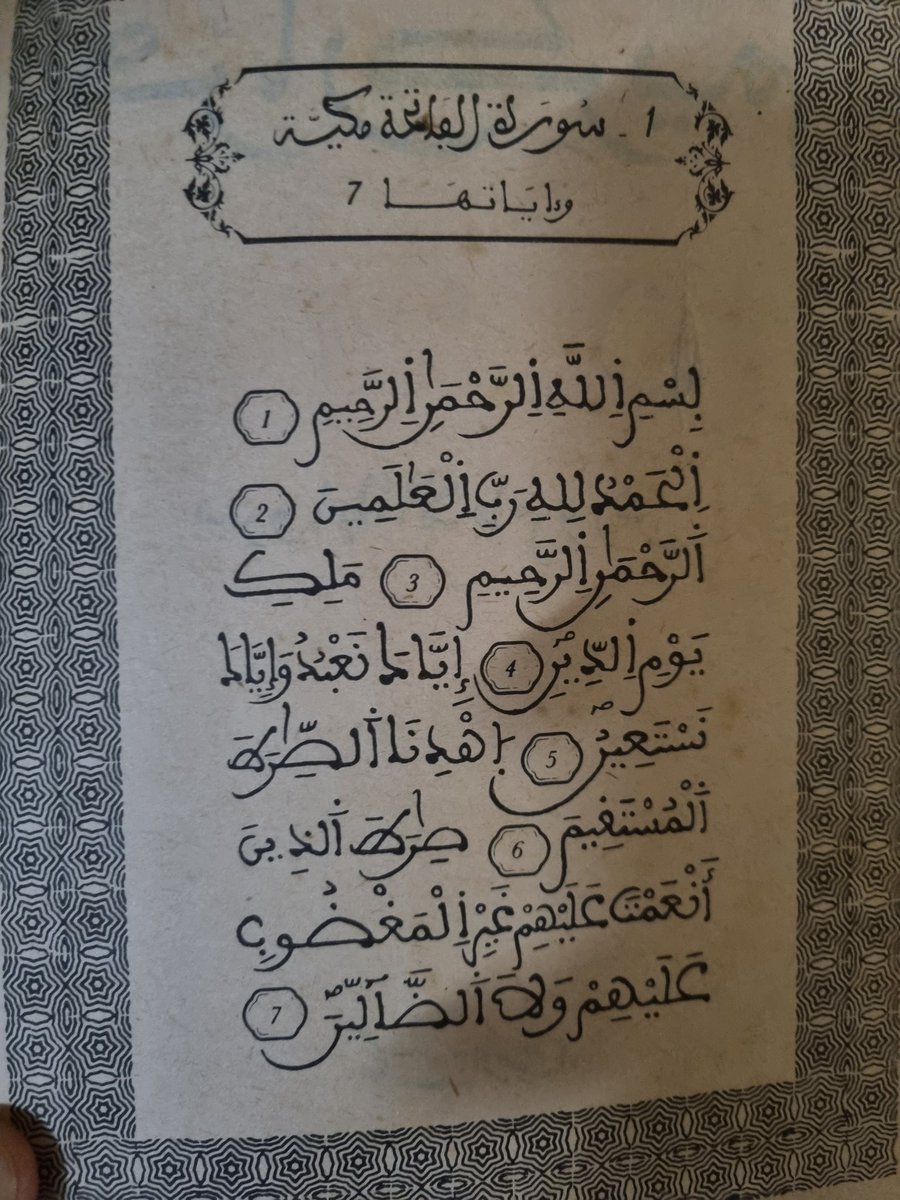 1 - سُورَة الفاتحة مكيّة
وءاياتها 7
بِسْمِ اِ۬للَّهِ اِ۬لرَّحْمَٰنِ اِ۬لرَّحِيمِ 1
اِ۬لْحَمْدُ لِلهِ رَبِّ اِ۬لْعَٰلَمِينَ 2
اَ۬لرَّحْمَٰنِ اِ۬لرَّحِيمِ 3 مَلِكِ
يَوْمِ اِ۬لدِّينِ 4 إِيَّاكَ نَعْبُدُ وَإِيَّاكَ
نَسْتَعِينُ 5 اِ۪هْدِنَا اَ۬لصِّرَٰطَ
اَ۬لْمُسْتَقِيمَ 6 صِرَٰطَ اَ۬لذِينَ
أَنْعَمْتَ عَلَيْهِمْ غَيْرِ اِ۬لْمَغْضُوبِ
عَلَيْهِمْ وَلَا اَ۬لضَّآلِّينَ 7